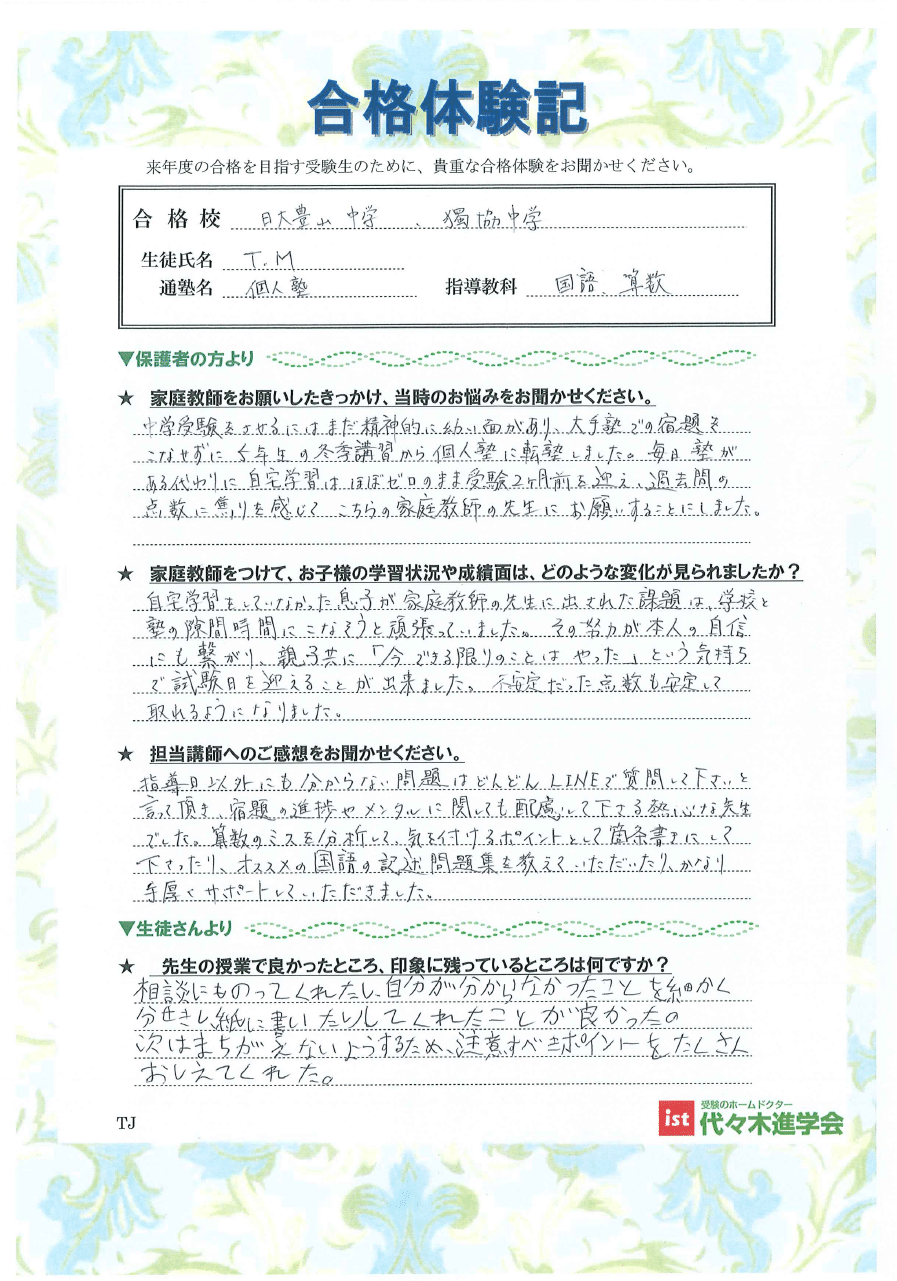 合格体験記
来年度の合格を目指す受験生のために、貴重な合格体験をお聞かせください。
合格校 日大豊山中学、獨協中学
生徒氏名 T.M
通塾名 個人塾 指導教科 国語、算数
▼保護者の方より
★ 家庭教師をお願いしたきっかけ、当時のお悩みをお聞かせください。
中学受験をさせるにはまだ精神的に幼い面があり、大手塾での宿題を
こなせずに5年生の冬季講習から個人塾に転塾しました。毎日塾が
ある代わりに自宅学習はほぼゼロのまま受験2ヶ月前を迎え、過去問の
点数に焦りを感じてこちらの家庭教師の先生にお願いすることにしました。
★ 家庭教師をつけて、お子様の学習状況や成績面は、どのような変化が見られましたか？
自宅学習をしていなかった息子が家庭教師の先生に出された課題は、学校と
塾の隙間時間にこなそうと頑張っていました。その努力が本人の自信
にも繋がり、親子共に「今できる限りのことはやった」という気持ち
で試験日を迎えることが出来ました。不安定だった点数も安定して
取れるようになりました。
★ 担当講師へのご感想をお聞かせください。
指導日以外にも分からない問題はどんどんLINEで質問して下さいと
言って頂き、宿題の進捗やメンタルに関しても配慮して下さる熱心な先生
でした。算数のミスを分析して、気を付けるポイントとして箇条書きにして
下さったり、オススメの国語の記述問題集を教えていただいたり、かなり
手厚くサポートしていただきました。
▼生徒さんより
★ 先生の授業で良かったところ、印象に残っているところは何ですか？
相談にものってくれたし、自分が分からなかったことを細かく
分せきし紙に書いたりしてくれたことが良かった。
次はまちがえないようするため、注意すべきポイントをたくさん
おしえてくれた。
TJ
ist 受験のホームドクター
代々木進学会